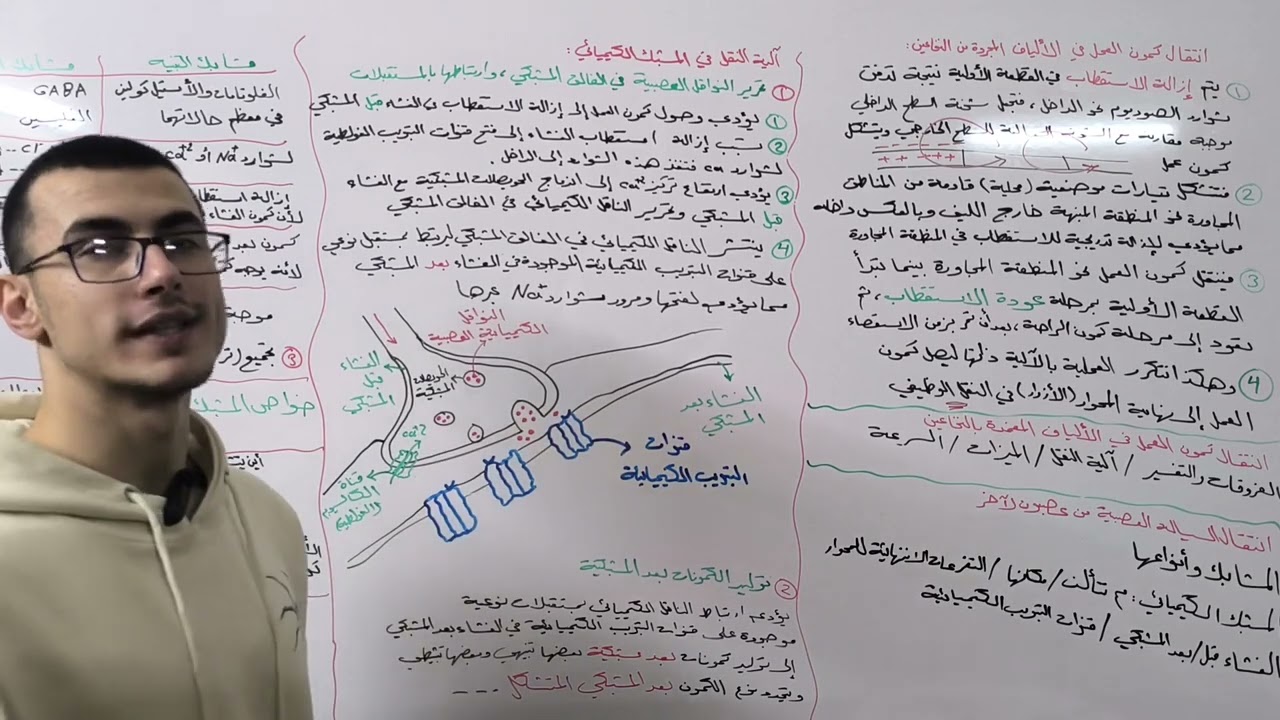 انتقال كمون العمل في الألياف المجردة من النخاعين:
① يتم إزالة الاستقطاب في القطعة الأولية نتيجة تدفق
شوارد الصوديوم نحو الداخل، فتجعل شحنة السطح الداخلي
موجبة مقارنة مع السطح الخارجي ويتشكل
كمون عمل
② فتتشكل تيارات موضعية (محلية) قادمة من المناطق
المجاورة نحو المنطقة المنبهة خارج الليف وبالعكس داخله
مما يؤدي لإزالة تدريجية للاستقطاب في المنطقة المجاورة
③ فينتقل كمون العمل نحو المنطقة المجاورة بينما تبدأ
القطعة الأولية بمرحلة عودة الاستقطاب، ثم
تعود إلى مرحلة كمون الراحة، بعد أن تمر بزمن الاستعصاء
④ وهكذا تتكرر العملية بالآلية ذاتها ليصل كمون
العمل إلى نهاية المحوار (الأزرار) في النقل الوظيفي
انتقال كمون العمل في الألياف المغمدة بالنخاعين
الفروقات والتفسير / آلية النقل / الميزات / السرعة
انتقال السيالة العصبية من عصبون لآخر
المشابك وأنواعها
المشبك الكيميائي: مم تتألف / مكانها / التفرعات الانتهائية للمحوار
الغشاء قبل / بعد المشبكي / قنوات التبويب الكيميائية
آلية النقل في المشبك الكيميائي:
① تحرير النواقل العصبية في الفالق المشبكي، وارتباطها بالمستقبلات
① يؤدي وصول كمون العمل إلى إزالة الاستقطاب في الغشاء قبل المشبكي
② تسبب إزالة استقطاب الغشاء إلى فتح قنوات التبويب الفولطية
لشوارد ca فتنفذ هذه الشوارد إلى الداخل.
③ يؤدي ارتفاع تركيز ca⁺² إلى اندماج الحويصلات المشبكية مع الغشاء
قبل المشبكي وتحرير الناقل الكيميائي في الفالق المشبكي
④ ينتشر الناقل الكيميائي في الفالق المشبكي ليرتبط بمستقبل نوعي
على قنوات التبويب الكيميائية الموجودة في الغشاء بعد المشبكي
مما يؤدي لفتحها ومرور شوارد Na⁺ عبرها
النواقل
الكيميائية العصبية
الحويصلات
المشبكية
الغشاء
قبل
المشبكي
ca⁺²
قناة
الكالسيوم
الفولطية
الغشاء بعد
المشبكي
قنوات
التبويب الكيميائية
② توليد الكمونات بعد المشبكية
يؤدي ارتباط الناقل الكيميائي بمستقبلات نوعية
موجودة على قنوات التبويب الكيميائية في الغشاء بعد المشبكي
إلى توليد كمونات بعد مشبكية بعضها تنبيهي وبعضها تثبيطي
ويتحدد نوع الكمون بعد المشبكي المتشكل ---
مشابك التنبيه
الغلوتامات والأستيل كولين
في معظم حالاتها
GABA
الغليسين
لشوارد Na⁺ أو ca⁺²
cl
إزالة استقطاب
لأن كمون الغشاء
موجة
③
خواص المشبك